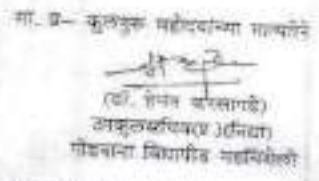 मा. प्र– कुलगुरू महोदयांच्या मान्यतेने
(डॉ. हेमंत बारसागडे)
उपकुलसचिव
गोंडवाना विद्यापीठ गडचिरोली